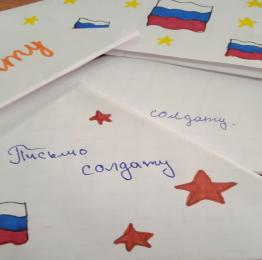 солдату.
Письмо
солдату